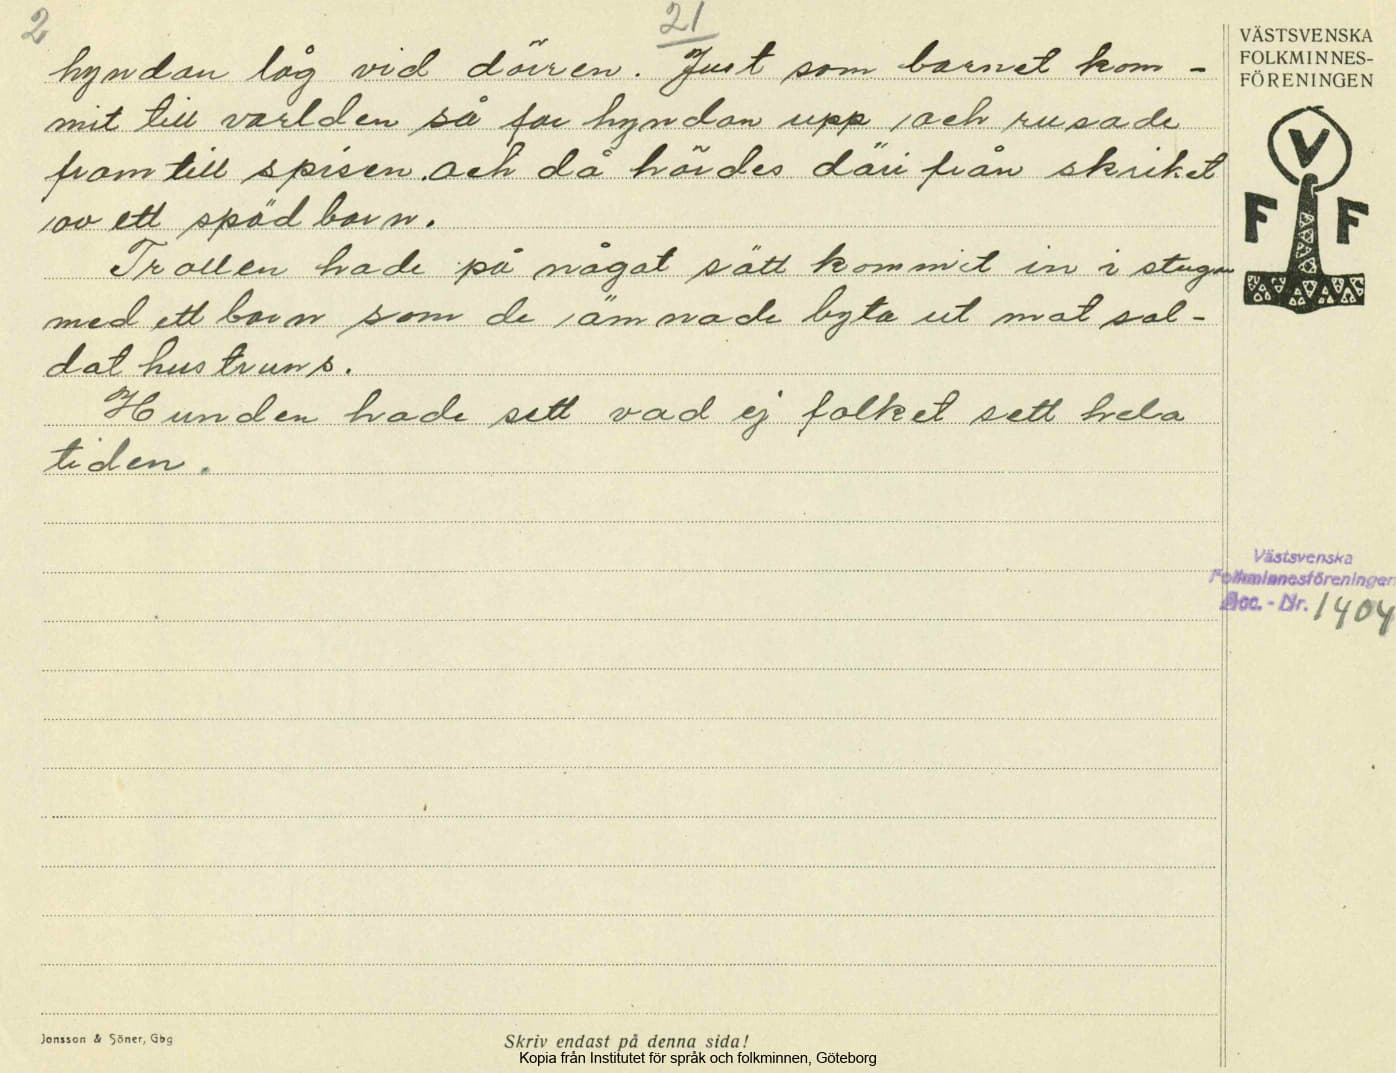 2
21
hyndan låg vid dörren. Just som barnet kom-
mit till världen så for hyndan upp och rusade
fram till spisen. och då hördes däri från skriket
av ett späd barn.
Trollen hade på något sätt kommit in i stugan
med ett barn som de ämnade byta ut mot sol-
dat hustruns.
Hunden hade sett vad ej folket sett hela
tiden.
VÄSTSVENSKA
FOLKMINNES-
FÖRENINGEN
V
F F
Västsvenska
Folkminnesföreningen
Acc. - Nr. 1404
Jonsson & Söner, Gbg
Skriv endast på denna sida!
Kopia från Institutet för språk och folkminnen, Göteborg